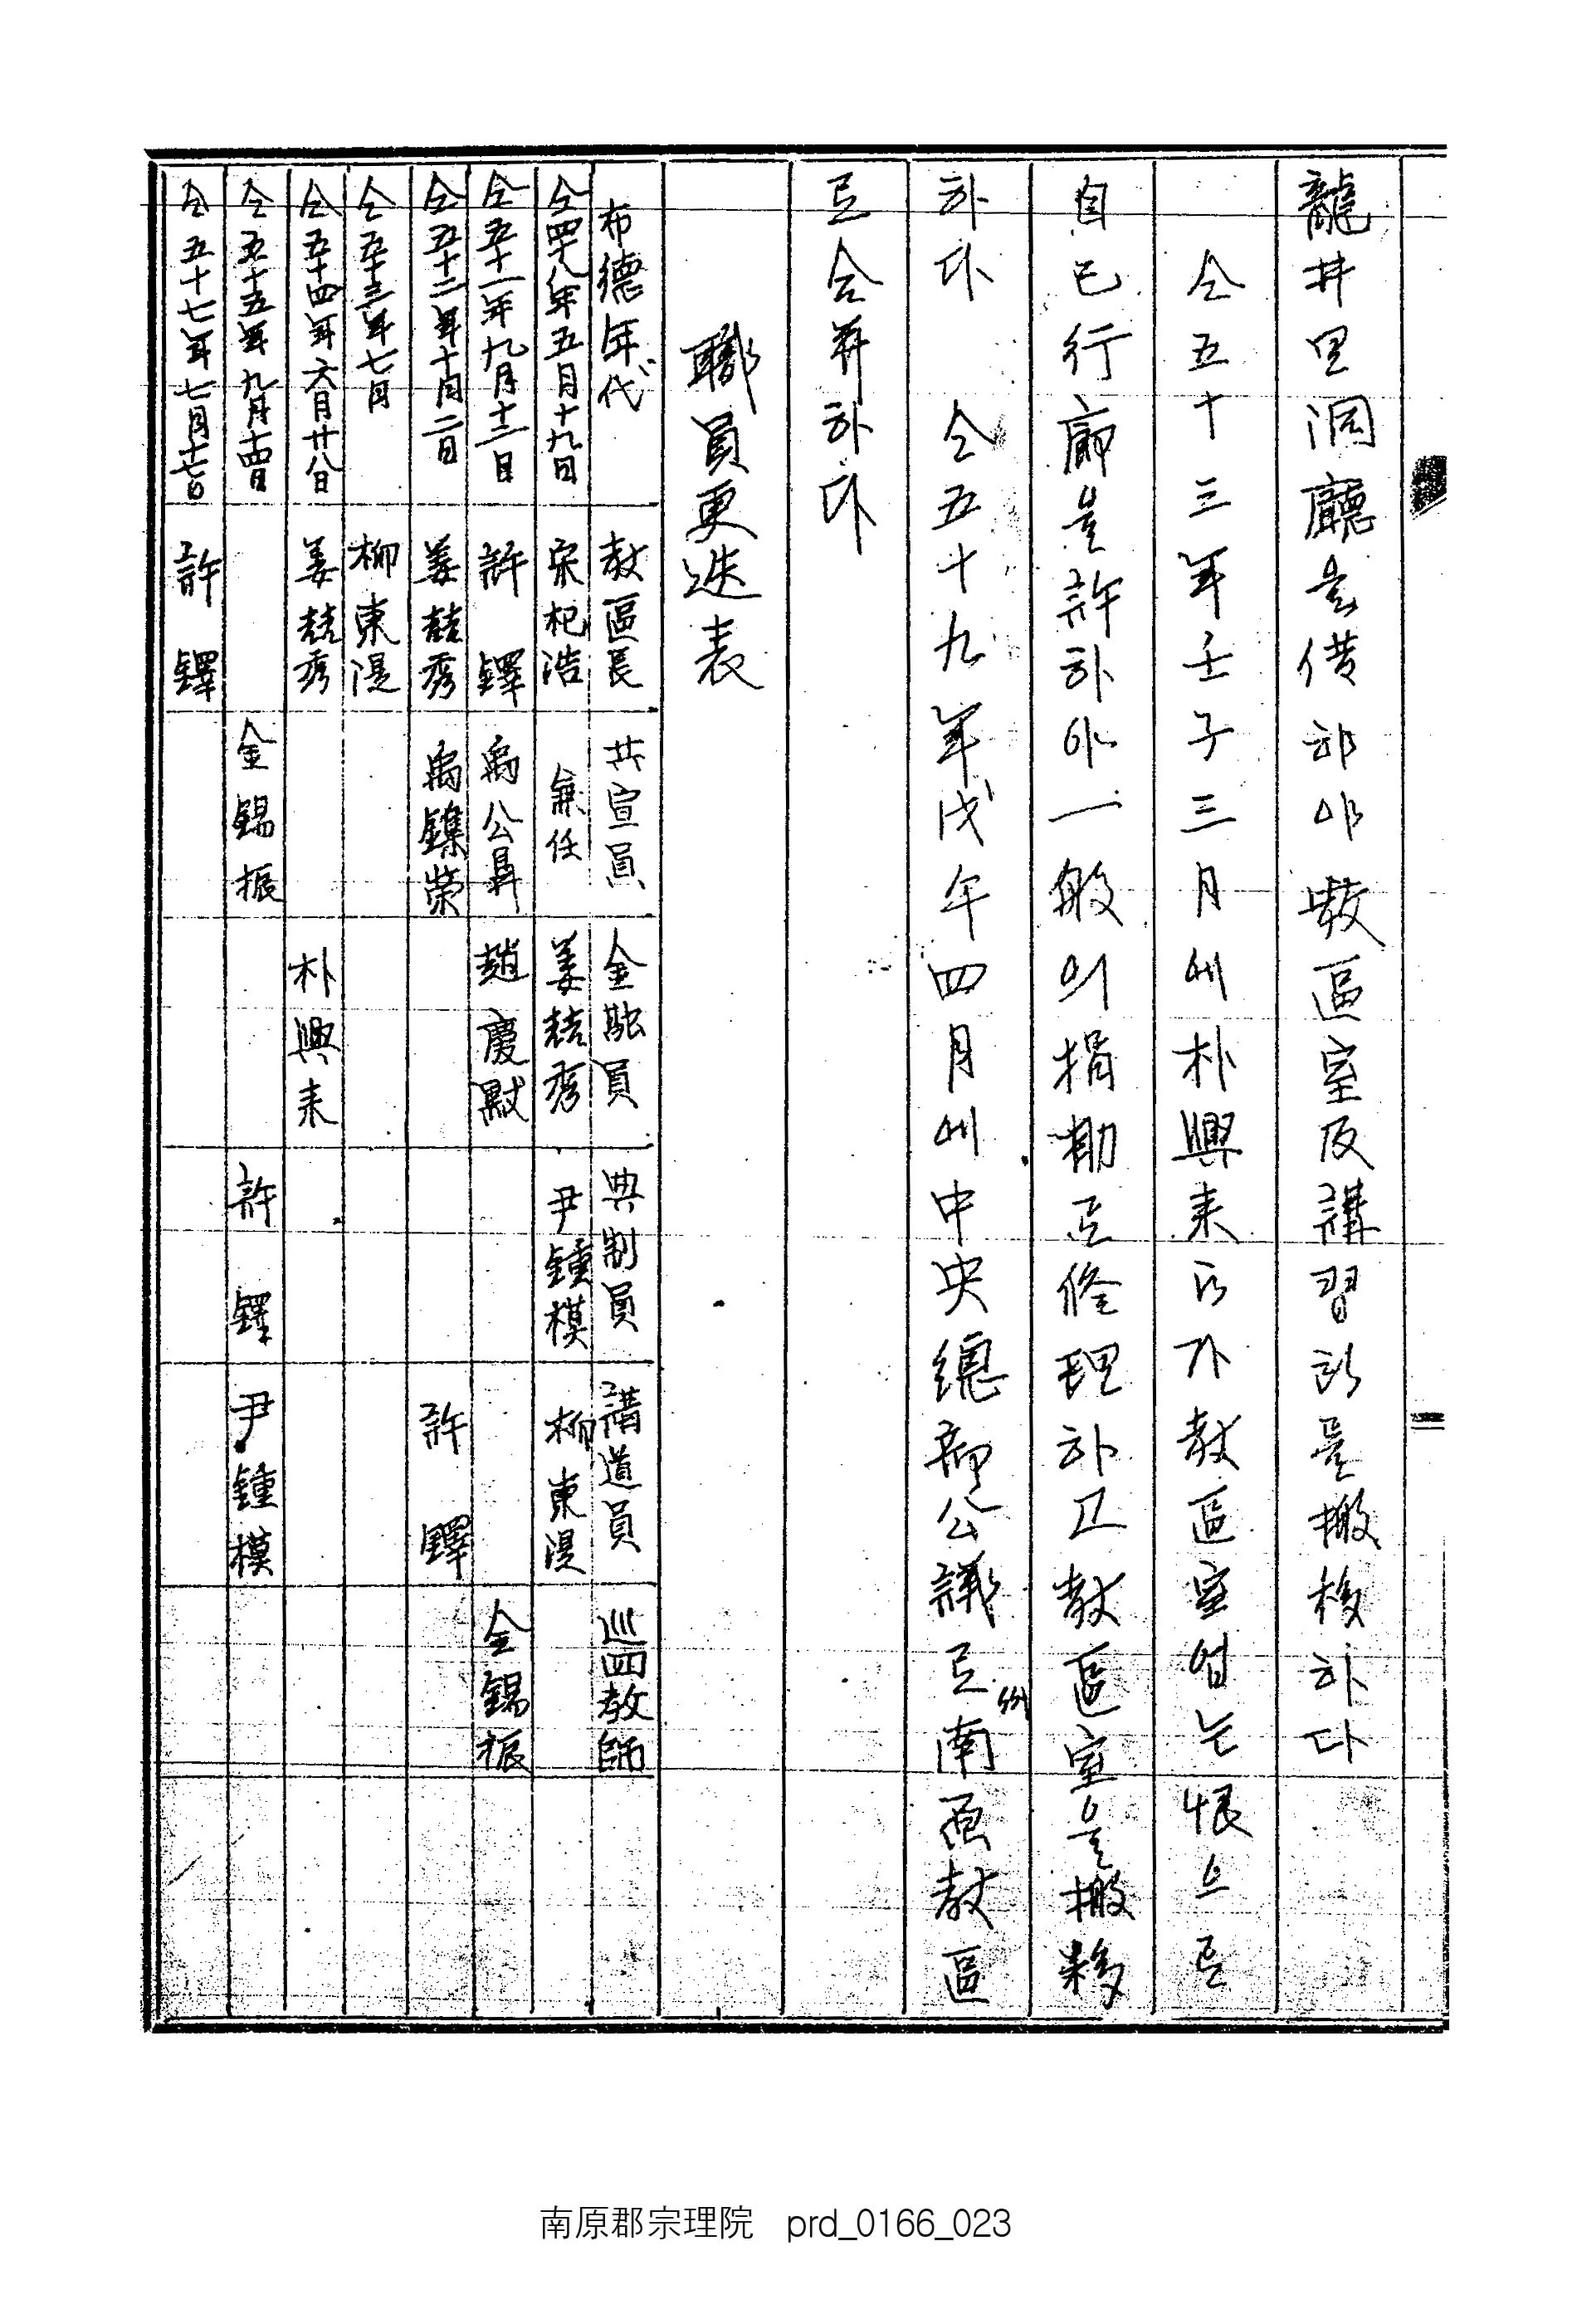 龍井里洞廳을借하야敎區室及講習所를搬移하다
仝五十三年壬子三月에朴興來氏가敎區室업는恨으로
自己行廊을許하야一般의捐助로修理하고敎區室을搬移
하다 仝五十九年戊午四月에中央總部公議로南原敎區
로合併하다
職員更迭表
布德年代 敎區長 共宣員 金融員 典制員 講道員 巡回敎師
仝四十八年五月十九日 宋杞浩 兼任 姜喆秀 尹鍾模 柳東湜
仝五十一年九月十二日 許鐸 禹公鼎 趙慶默 金錫振
仝五十二年十月二日 姜喆秀 禹鏶榮 許鐸
仝五十三年七月 柳東湜
仝五十四年六月廿八日 姜喆秀 朴興來
仝五十五年九月十四日 金錫振 許鐸 尹鍾模
仝五十七年七月十七日 許鐸
南原郡宗理院 prd_0166_023